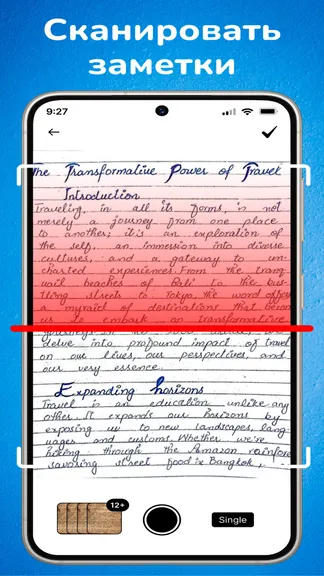 Сканировать
заметки
9:27
The Transformative Power of Travel
Introduction
Traveling, in all its forms, is not
merely a journey from one place
to another; it's an exploration of
the self, an immersion into diverse
cultures, and a gateway to un-
charted experiences. From the tranq
uail beaches of Bali to the bus-
tling streets to Tokyo, the word offers
a myraid of destinations that becon
us to embark on transformative
delve into profound impact of travel
on our lives, our perspectives, and
our very essence.
Expanding Horizons
Travel is an education unlike any
other. It expands our horizons by
exposing us to new landscapes, lang-
uages and customs. Whether we're
hiking through the Amazon rainfore
savoring street food in Bangkok,
12+
Single